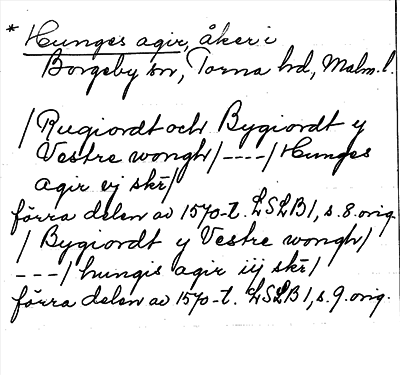 * Hunges agir, åker i
Borgeby sn, Torna hd, Malm. l.
/Rugiordt och Bygiordt y
Vestre wongh/----/Hunges
agir vj skr/
förra delen av 1570-t. LSLB1, s. 8. orig.
/Bygiordt y Vestre wongh/
---/hungis agir iij skr/
förra delen av 1570-t. LSLB1, s. 9. orig.